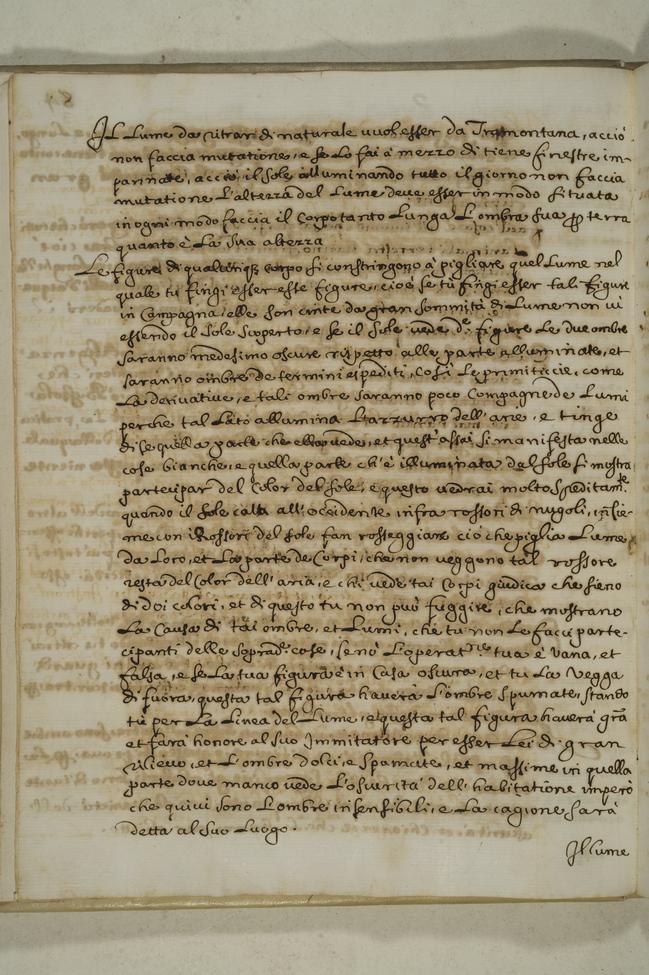 Il Lume da ritrar di naturale vuol esser da Tramontana, acciò
non faccia mutatione, e se Lo fai à mezzo di tiene finestre im-
pannate, acciò il sole alluminando tutto il giorno non faccia
mutatione L'altezza del Lume deve esser in modo situata
in ogni modo faccia il Corpo tanto Lunga L'ombra sua p terra
quanto è La sua altezza
Le figure di qualunque corpo si constringono à pigliare quel Lume nel
quale tu fingi esser esse figure, cioè se tu fingi esser tali figure
in Campagna, elle son cinte da gran sommità di Lume non vi
essendo il sole scoperto, e se il sole vede d.e figure Le due ombre
saranno medesimo oscure rispetto alle parte alluminate, et
saranno ombre de termini espediti, così Le primiticcie, come
La derivative, e tali ombre saranno poco Compagne de Lumi
perche tal Lato allumina L'azzurro dell'arie, e tinge
di se quella parte che ella vede, et quest'assai si manifesta nelle
cose bianche, e quella parte ch'è illuminata dal sole si mostra
partecipar del Color del sole, e questo vedrai molto speditam.te
quando il sole cala all'occidente infra rossori di nugoli, insie-
me con i Rossori del sole fan rosseggiare ciò che piglia Lume
da Loro, et La parte de Corpi, che non veggono tal rossore
resta del Color dell'aria, e chi vede tai Corpi giudica che sieno
di doi colori, et di questo tu non puo fuggire, che mostrano
La Causa di tai ombre, et Lumi, che tu non Le facci parte-
cipanti delle soprad. cose, se no L'operat.ne tua è vana, et
falsa, e se La tua figura è in Casa oscura, et tu La vegga
di fuora, questa tal figura haverà L'ombre sfumate, stando
tu per La Linea del Lume, e questa tal figura haverà grã
et farà honore al suo Immitatore per esser Lei di gran
rilievo, et L'ombre dolci, e sfumate, et massime in quella
parte dove manco vede L'oscurità dell'habitatione imperò
che quivi sono L'ombre insensibili, e La cagione sarà
detta al suo Luogo.
Il Lume